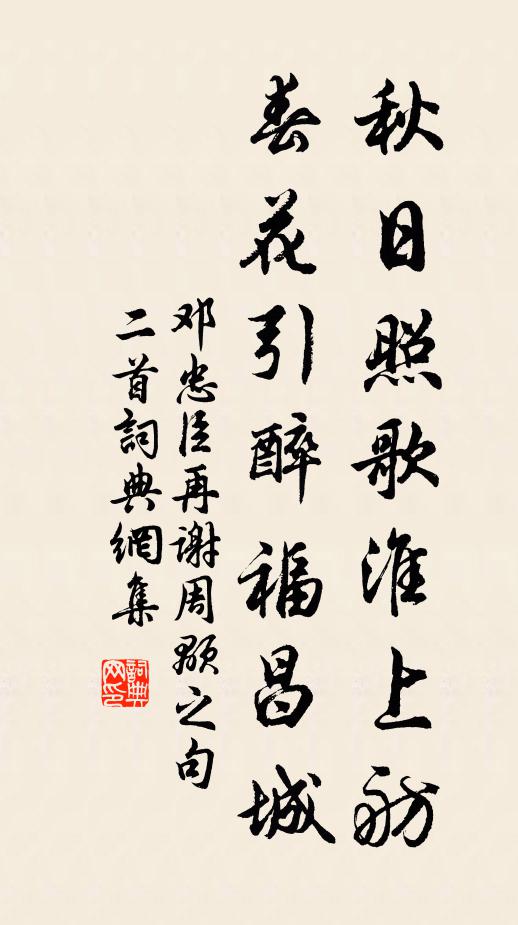 秋日照歌淮上舫
春花引醉福昌城
邓忠臣再谢周䫉之句
二首詞典網集
詞典
网印